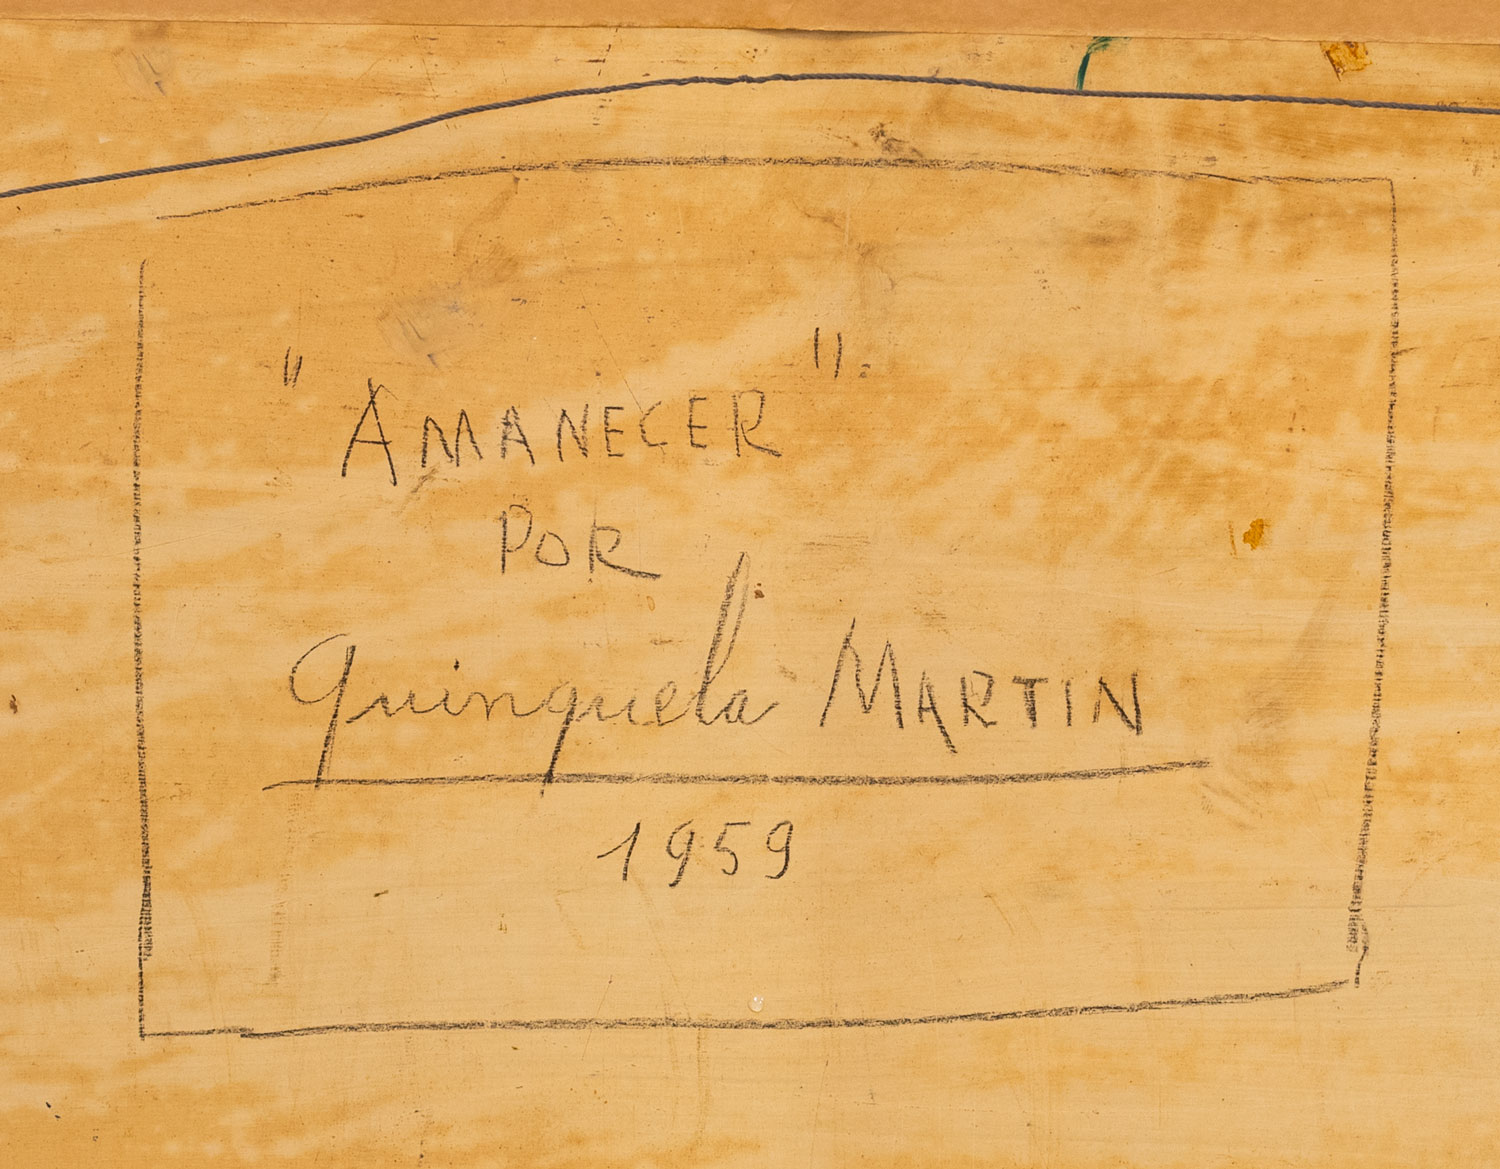 "AMANECER".
POR
Quinquela MARTIN
1959